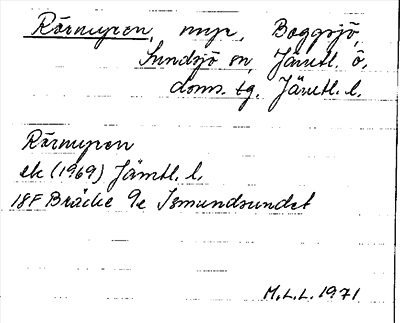 Rörmyren, myr, Boggsjö,
Sundsjö sn, Jämtl. ö.
doms. tg. Jämtl. l.
Rörmyren
ek (1969) Jämtl. l.
18F Bräcke 9e Ismundsundet
M.L.L. 1971